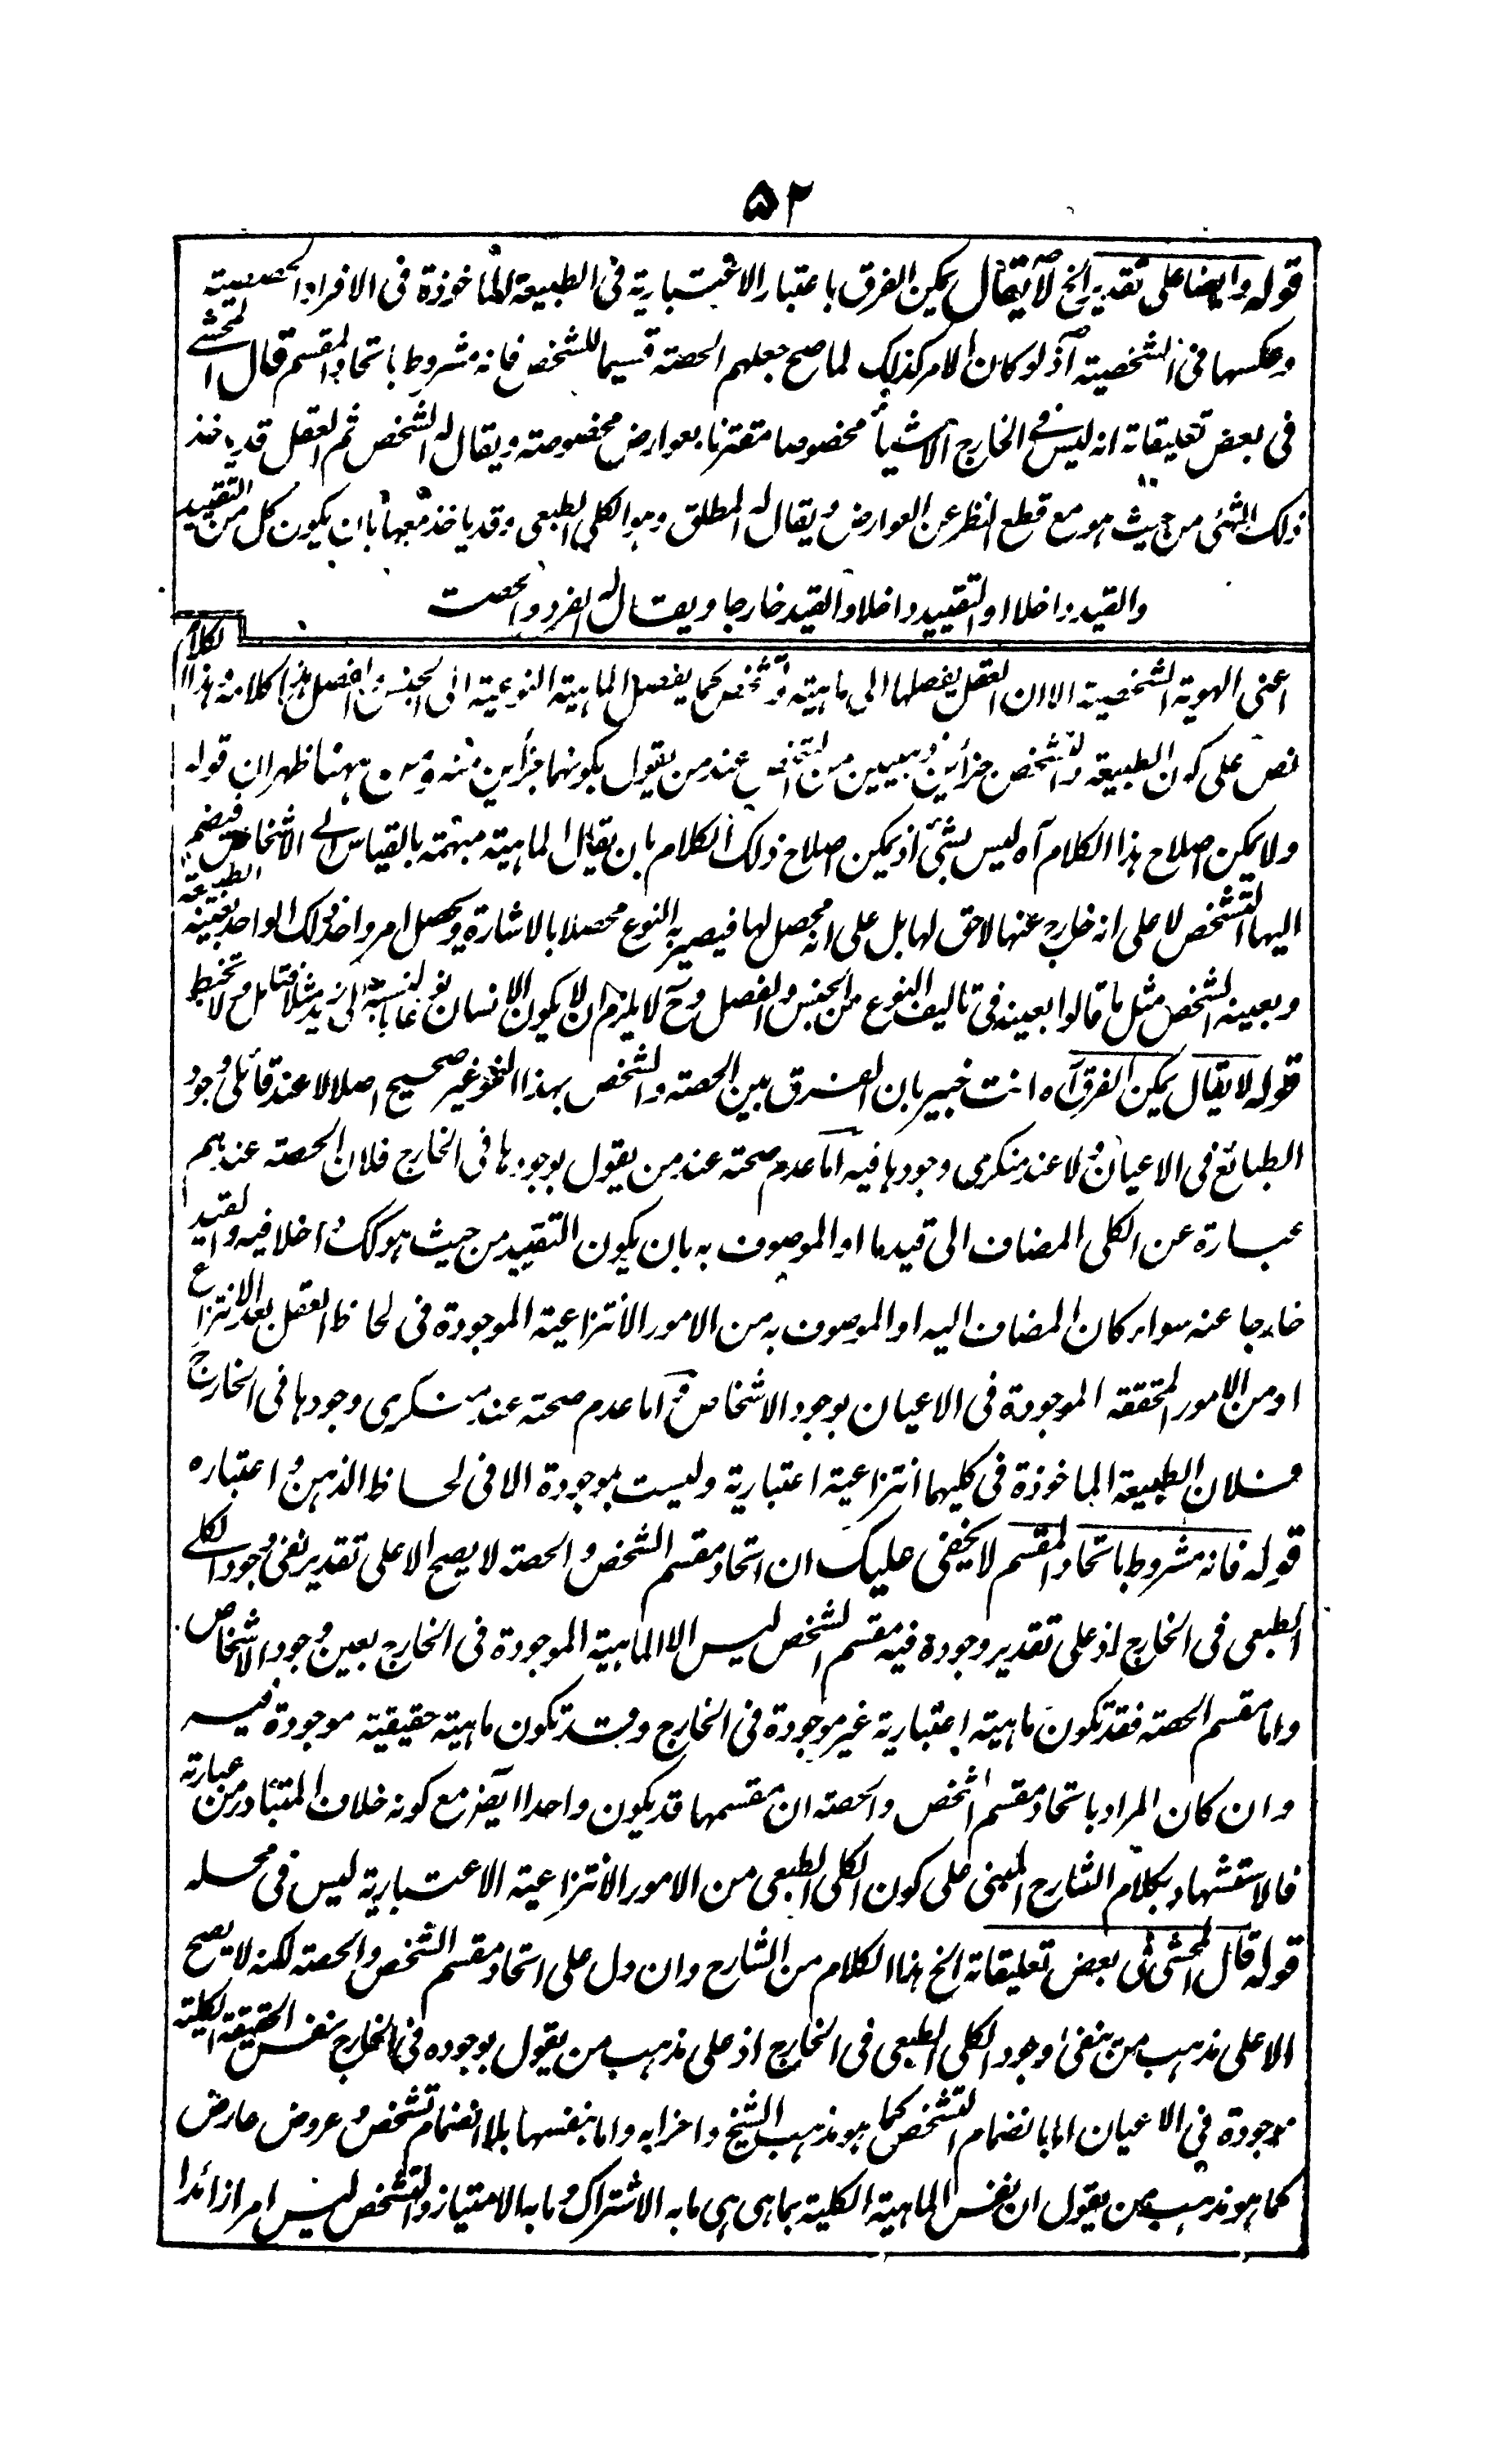 ۵۲
قوله وايضا على تقدير الخ لا يقال يمكن الفرق باعتبار الاعتبارية فى الطبيعة الماخوذة فى الافراد الحصصية
وعكسها فى الشخصية اذ لو كان الامر كذلك لما صح جعلهم الحصة قسيما للشخص فانه مشروط باتحاد المقسم قال المحشى
فى بعض تعليقاته انه ليس فى الخارج الا شيأ مخصوصا مقترنا بعوارض مخصوصة ويقال له الشخص ثم العقل قد ياخذ
ذلك الشئى من حيث هو مع قطع النظر عن العوارض ويقال له المطلق وهو الكلى الطبعى وقد ياخذ معها بان يكون كل من التقييد
والقيد داخلا او التقييد داخلا والقيد خارجا ويقال له الفرد والحصة
اعنى الهوية الشخصية الا ان العقل يفصلها الى ماهية وتشخص كما يفصل الماهية النوعية الى الجنس والفصل هذا كلامه هذا الكلام
نص على كون الطبيعة والتشخص جزأين ذهنيين من الشخص عند من يقول بكونهما جزأين منه ومن ههنا ظهر ان قوله
ولا يمكن اصلاح هذا الكلام آه ليس بشئ اذ يمكن اصلاح ذلك الكلام بان يقال الماهية مبهمة بالقياس الى الاشخاص فيضم
اليها التشخص لا على انه خارج عنها لاحق لها بل على انه محصل لها فيصير به النوع محصلا بالاشارة ويحصل امر واحد ذلك الواحد بعينه الطبيعة
وبعينه الشخص مثل ما قالوا بعينه فى تاليف النوع من الجنس والفصل وح لا يلزم ان لا يكون الانسان نوعا بالنسبة الى زيد مثلا فتامل ولا تخبط
قوله لا يقال يمكن الفرق آه انت خبير بان الفرق بين الحصة والشخص بهذا النحو غير صحيح اصلا لا عند قائلى وجود
الطبائع فى الاعيان ولا عند منكرى وجودها فيه اما عدم صحته عند من يقول بوجودها فى الخارج فلان الحصة عندهم
عبارة عن الكلى المضاف الى قيد ما او الموصوف به بان يكون التقييد من حيث هو كك داخلا فيه والقيد
خارجا عنه سواء كان المضاف اليه او الموصوف به من الامور الانتزاعية الموجودة فى لحاظ العقل بعد الانتزاع
او من الامور المحققة الموجودة فى الاعيان بوجود الاشخاص واما عدم صحته عند منكرى وجودها فى الخارج
فلان الطبيعة الماخوذة فى كليهما انتزاعية اعتبارية وليست بموجودة الا فى لحاظ الذهن واعتباره
قوله فانه مشروط باتحاد المقسم لا يخفى عليك ان اتحاد مقسم الشخص والحصة لا يصح الا على تقدير نفى وجود الكلى
الطبعى فى الخارج اذ على تقدير وجوده فيه مقسم الشخص ليس الا الماهية الموجودة فى الخارج بعين وجود الاشخاص
واما مقسم الحصة فقد تكون ماهية اعتبارية غير موجودة فى الخارج وقد تكون ماهية حقيقية موجودة فيه
وان كان المراد باتحاد مقسم الشخص والحصة ان مقسمهما قد يكون واحدا ايضا فمع كونه خلاف المتبادر من عبارته
فالاستشهاد بكلام الشارح المبنى على كون الكلى الطبعى من الامور الانتزاعية الاعتبارية ليس فى محله
قوله قال المحشى فى بعض تعليقاته الخ هذا الكلام من الشارح وان دل على اتحاد مقسم الشخص والحصة لكنه لا يصح
الا على مذهب من ينفى وجود الكلى الطبعى فى الخارج اذ على مذهب من يقول بوجوده فى الخارج نفس الحقيقة الكلية
موجودة فى الاعيان اما بانضمام التشخص كما هو مذهب الشيخ واحزابه واما بنفسها بلا انضمام تشخص وعروض عارض
كما هو مذهب من يقول ان نفس الماهية الكلية بما هى هى ما به الاشتراك وما به الامتياز والتشخص ليس امرا زائدا